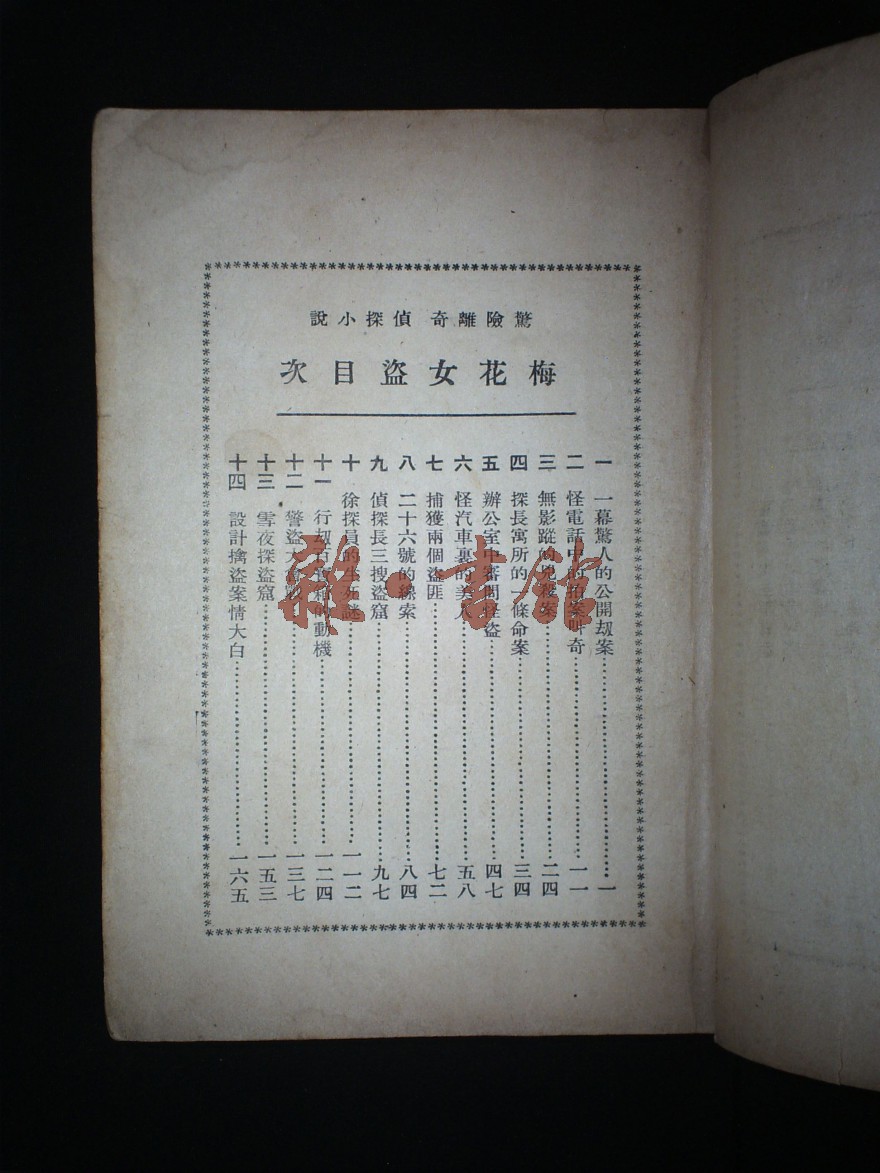 驚險離奇 偵探小說
梅花女盜目次
一 一幕驚人的公開刼案……一
二 怪電話中的拍案叫奇……一一
三 無影蹤的兇殺案……二四
四 探長寓所的一條命案……三四
五 辦公室中審問怪盜……四七
六 怪汽車裏的美人……五八
七 捕獲兩個盜匪……七二
八 二十六號的線索……八四
九 偵探長三搜盜窟……九七
十 徐探員的生死謎……一一二
十一 行刼百寶箱的動機……一二四
十二 警盜大會戰……一三七
十三 雪夜探盜窟……一五三
十四 設計擒盜案情大白……一六五
雅·書館